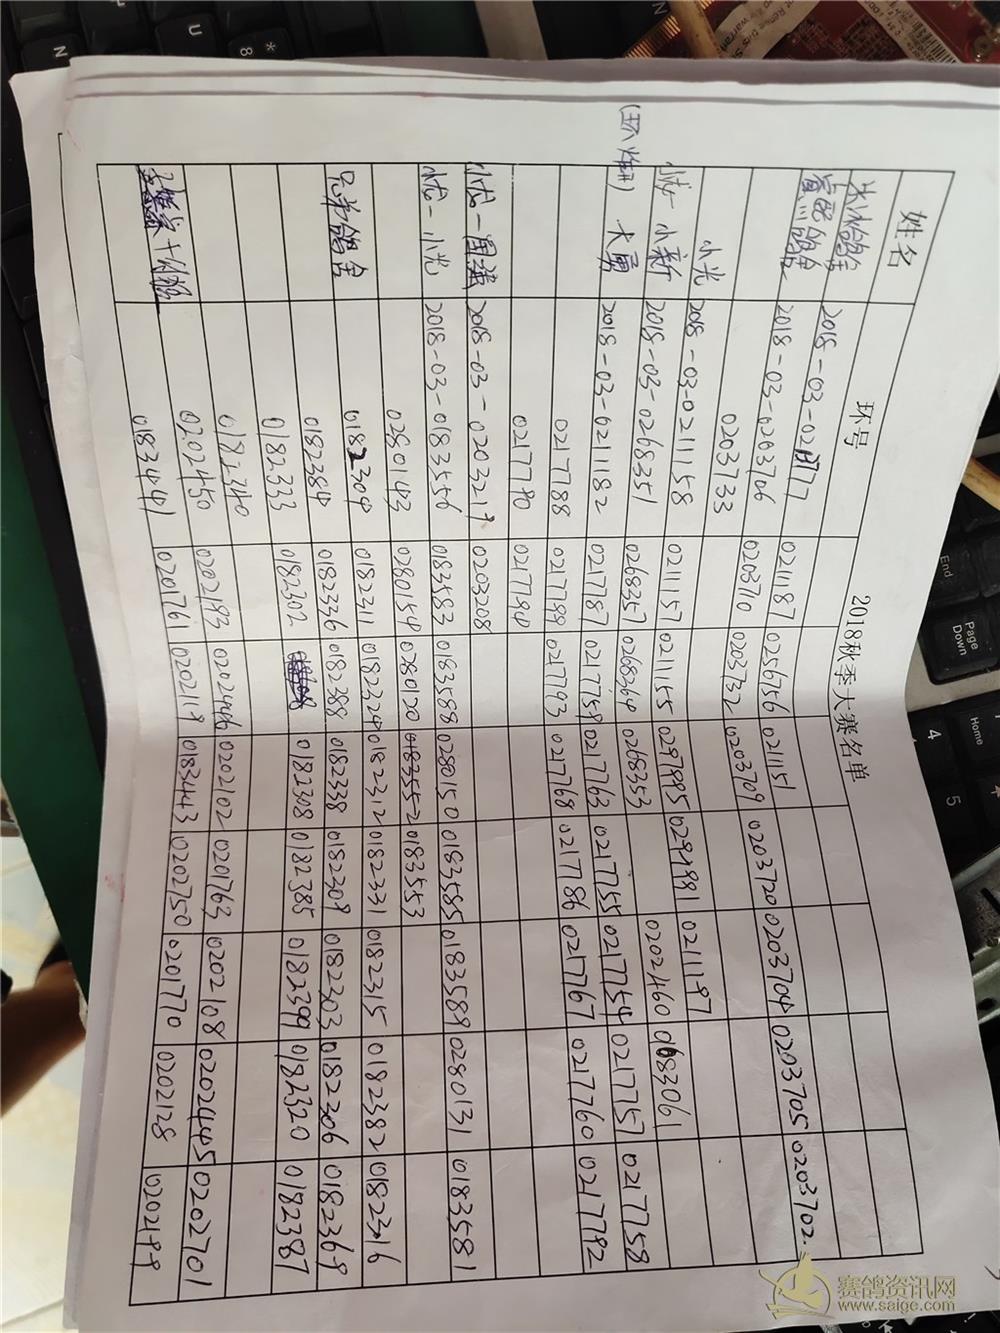 2018秋季大赛名单
姓名 环号
2018-03-0211177 0211187 0256756 0211151
2018-03-0203706 0203710 0203732 0203709 0203720 0203704 0203705 0203702
0203733
小光 2018-03-0211158 0211157 0211155 0297995 0292981 0211197
小新 2018-03-0268351 0268357 0268364 0268353 0202460 0183061
大勇 2018-03-0211182 0217787 0217759 0217763 0217755 0217754 0217757 0217758
0217788 0217799 0217793 0217768 0217786 0217767 0217760 0217792
0217790 0217794
2018-03-0203217 0203208
小龙-小光 2018-03-0183556 0183583 0183588 0280150 0183585 0183589 0280131 0183581
0280143 0280154 0280120 0183552 0183553
兄弟鸽舍 0182304 0182311 0182324 0182312 0182331 0182315 0182382 0182316
0182384 0182336 0182388 0182338 0182309 0182203 0182306 0182369
0182333 0182302 0182308 0182385 0182399 0182320 0182387
0182340
0202450 0202193 0202446 0202102 0201763 0202108 0202445 0202701
0183441 0201761 0202119 0183443 0202750 0201770 0202128 0202199
End
Page Down
Home
4
5
N
U
8
*
N
赛鸽资讯网
www.saige.com